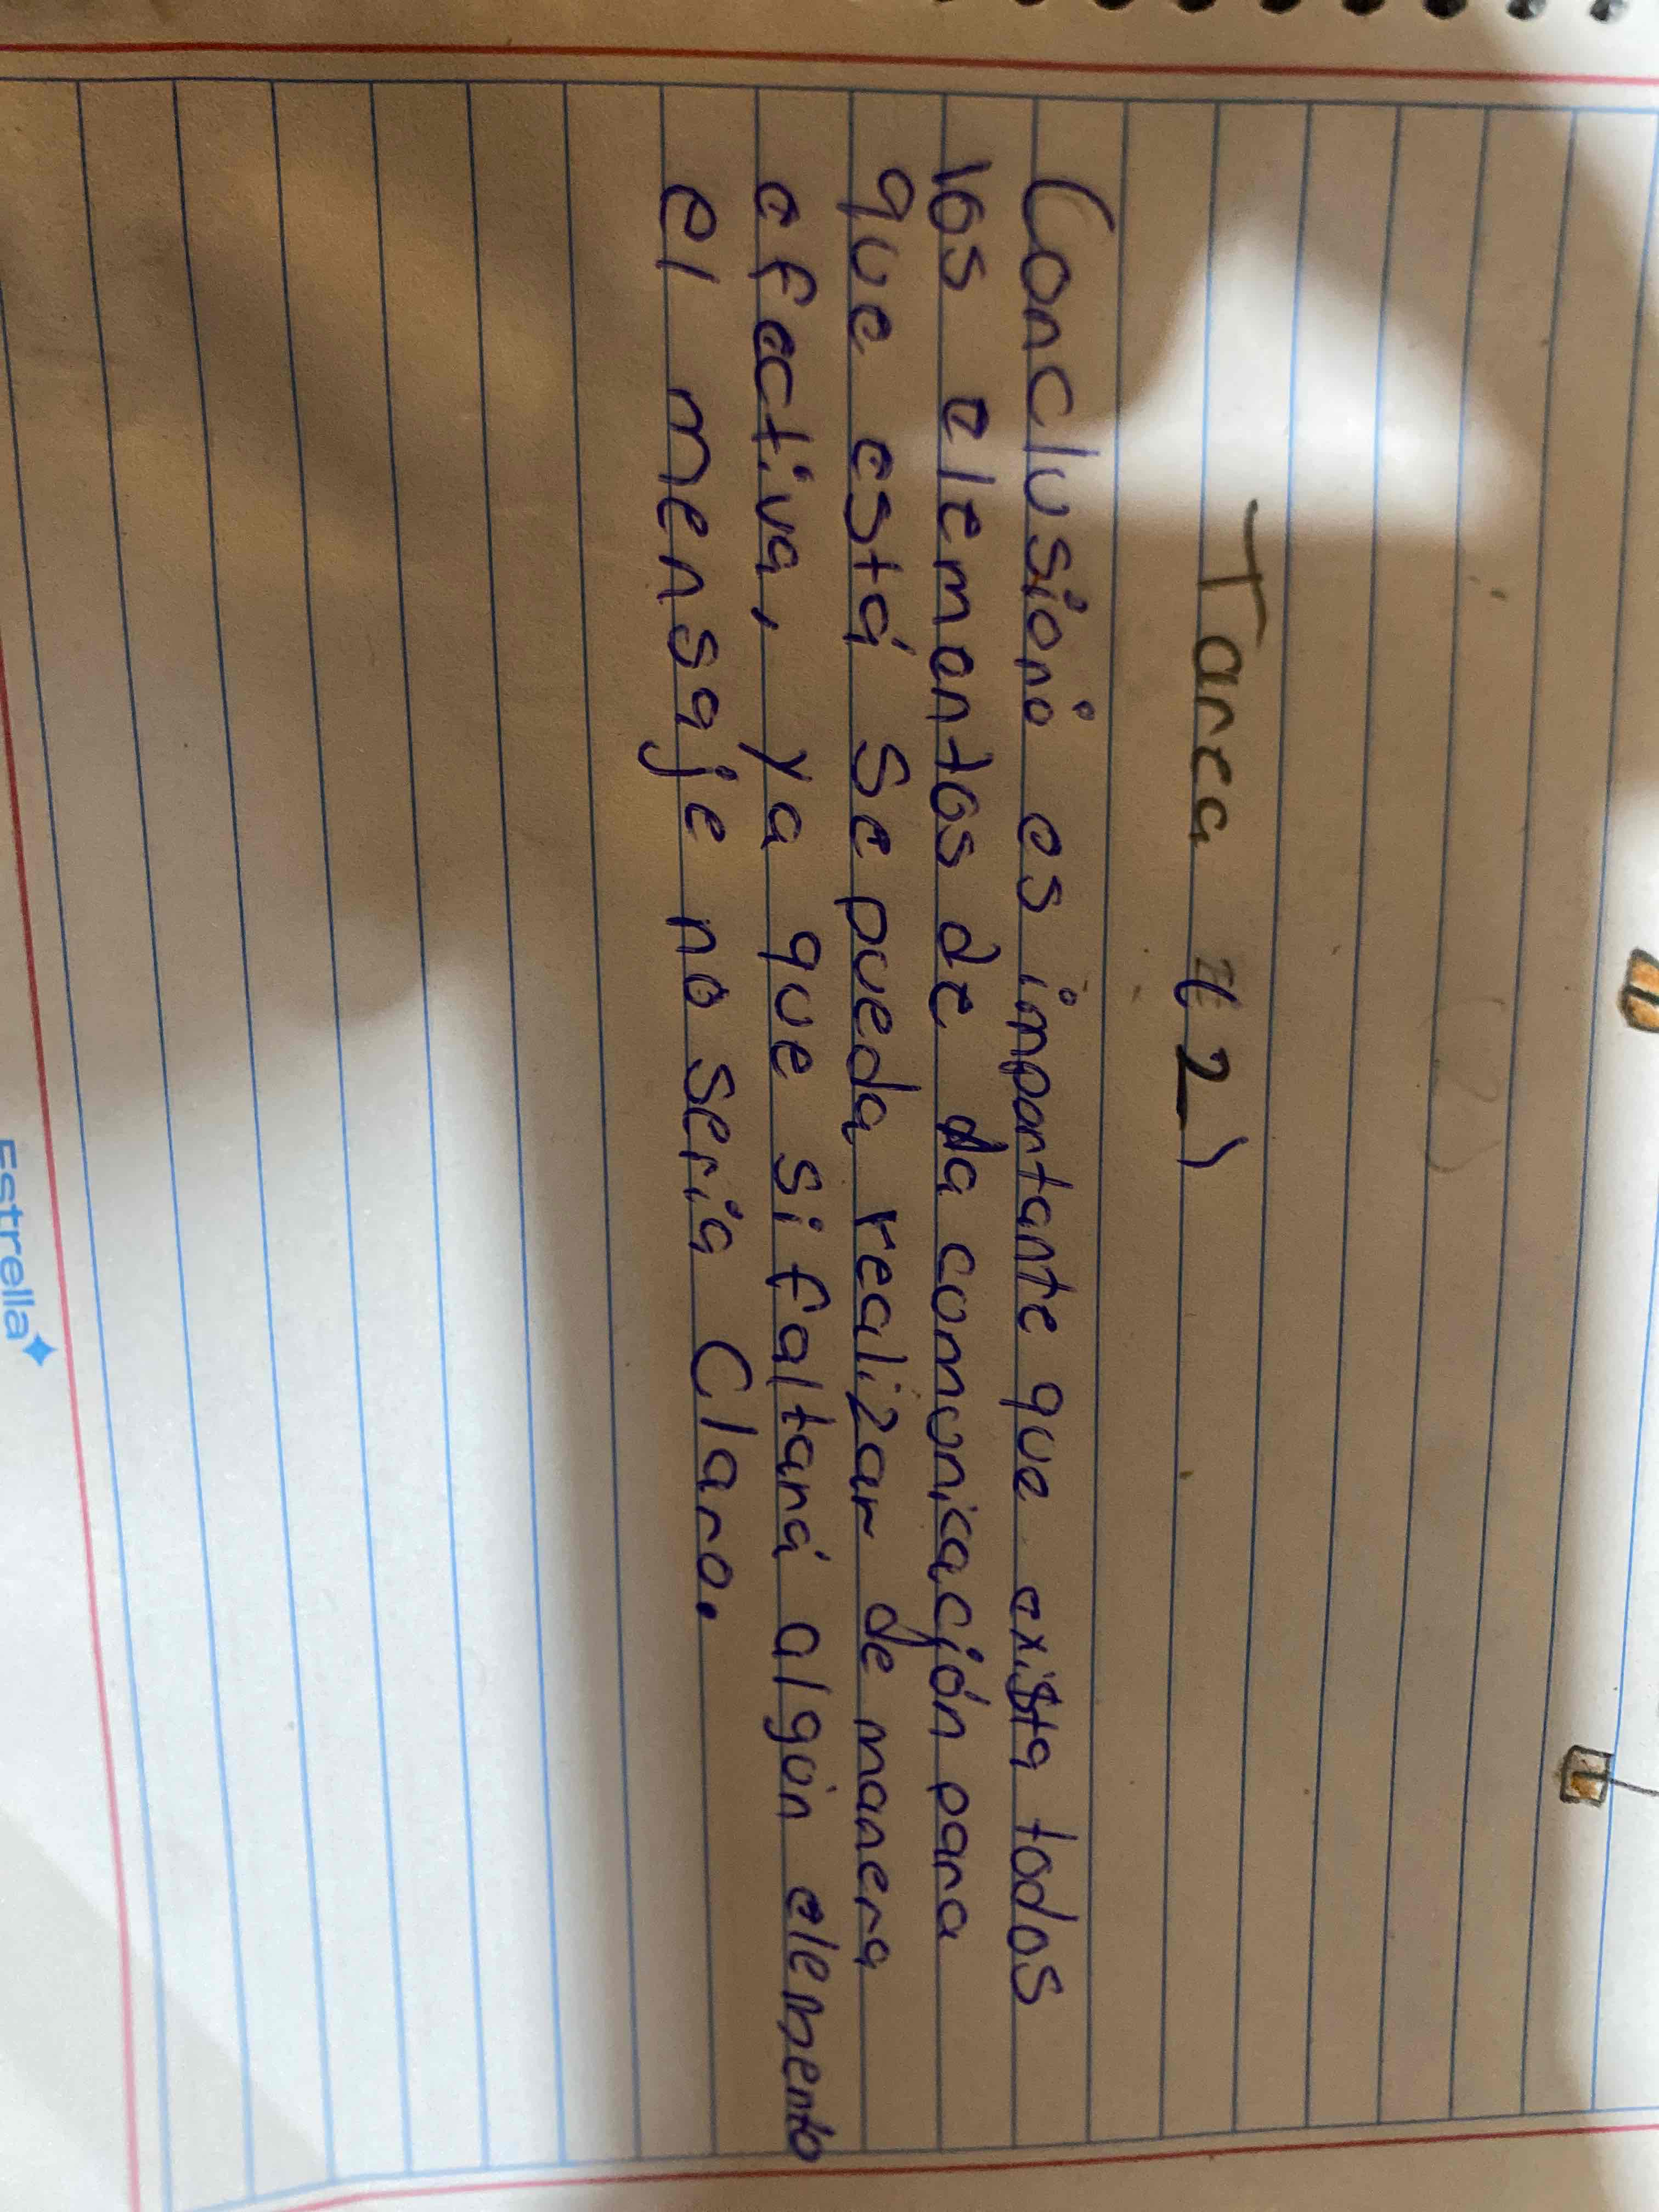 Tarea (2)
Conclusionó es importante que exista todos
los elementos de la comunicación para
que está se pueda realizar de manera
efectiva, ya que si faltará algún elemento
el mensaje no seria Claro.
Estrella